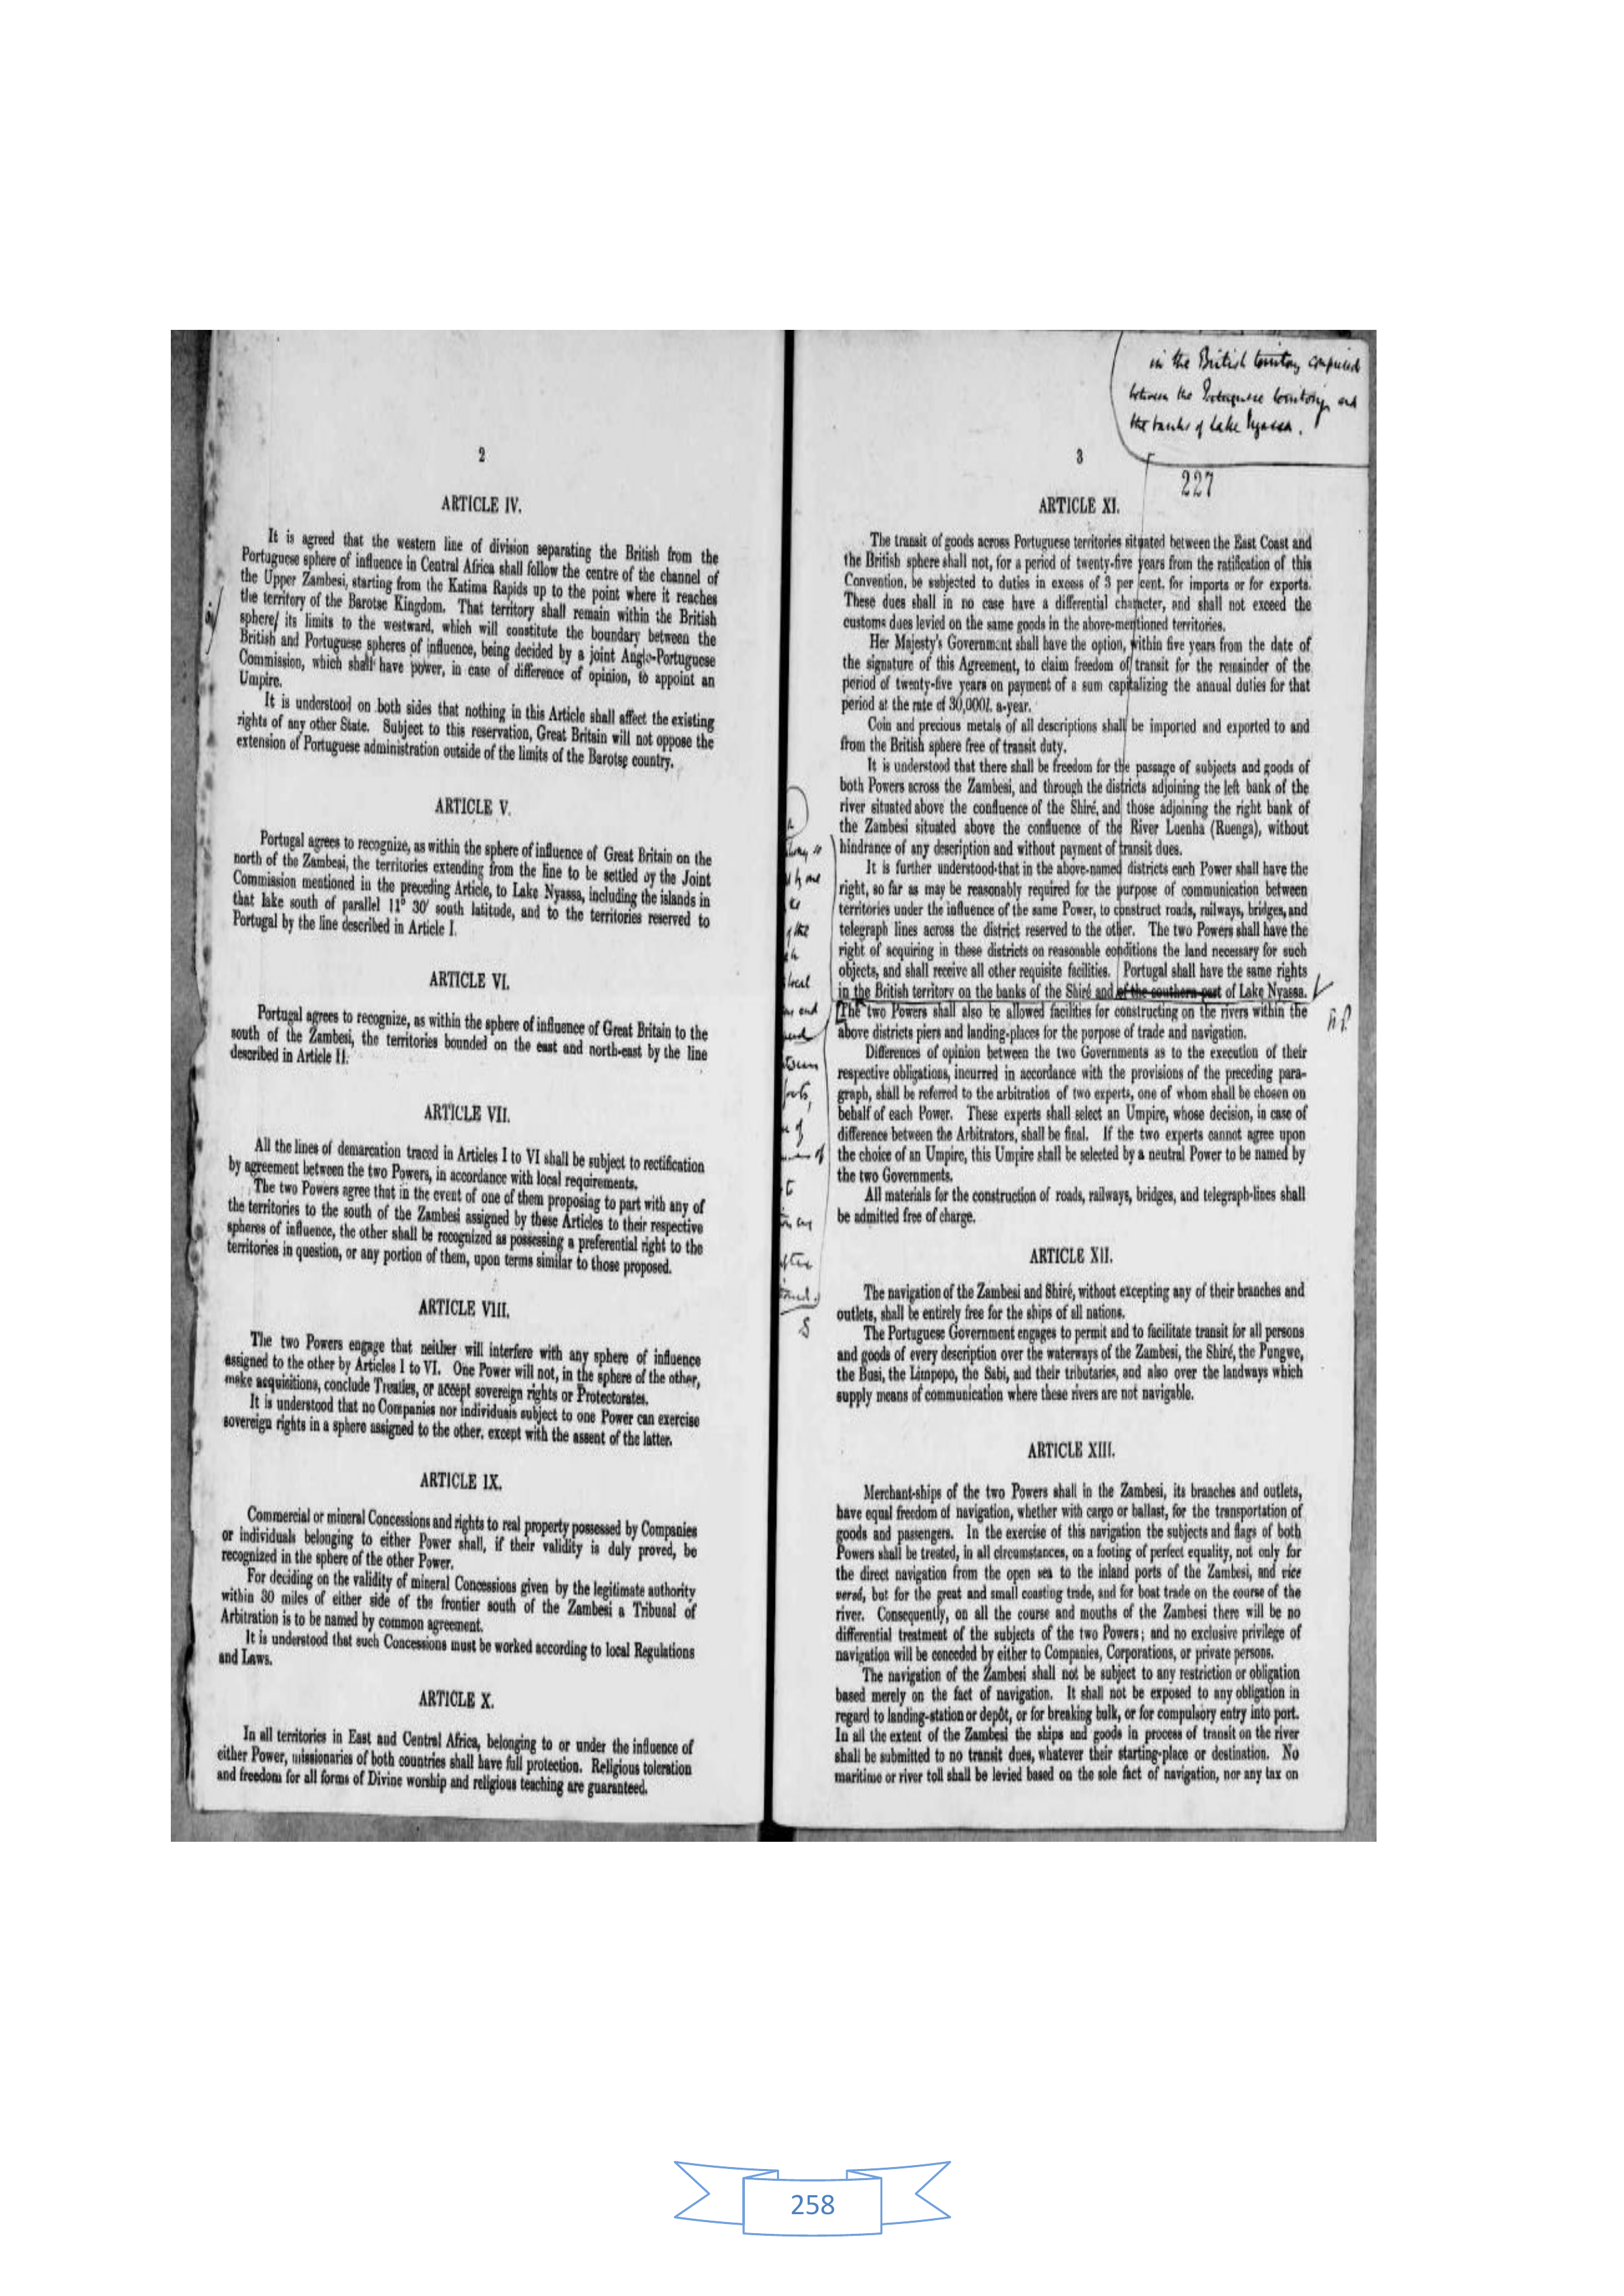 2
ARTICLE IV.
It is agreed that the western line of division separating the British from the
Portuguese sphere of influence in Central Africa shall follow the centre of the channel of
the Upper Zambesi, starting from the Katima Rapids up to the point where it reaches
the territory of the Barotse Kingdom. That territory shall remain within the British
sphere/ its limits to the westward, which will constitute the boundary between the
British and Portuguese spheres of influence, being decided by a joint Anglo-Portuguese
Commission, which shall have power, in case of difference of opinion, to appoint an
Umpire.
It is understood on both sides that nothing in this Article shall affect the existing
rights of any other State. Subject to this reservation, Great Britain will not oppose the
extension of Portuguese administration outside of the limits of the Barotse country.
ARTICLE V.
Portugal agrees to recognize, as within the sphere of influence of Great Britain on the
north of the Zambesi, the territories extending from the line to be settled by the Joint
Commission mentioned in the preceding Article, to Lake Nyassa, including the islands in
that lake south of parallel 11° 30' south latitude, and to the territories reserved to
Portugal by the line described in Article I.
ARTICLE VI.
Portugal agrees to recognize, as within the sphere of influence of Great Britain to the
south of the Zambesi, the territories bounded on the east and north-east by the line
described in Article II.
ARTICLE VII.
All the lines of demarcation traced in Articles I to VI shall be subject to rectification
by agreement between the two Powers, in accordance with local requirements.
The two Powers agree that in the event of one of them proposing to part with any of
the territories to the south of the Zambesi assigned by these Articles to their respective
spheres of influence, the other shall be recognized as possessing a preferential right to the
territories in question, or any portion of them, upon terms similar to those proposed.
ARTICLE VIII.
The two Powers engage that neither will interfere with any sphere of influence
assigned to the other by Articles I to VI. One Power will not, in the sphere of the other,
make acquisitions, conclude Treaties, or accept sovereign rights or Protectorates.
It is understood that no Companies nor individuals subject to one Power can exercise
sovereign rights in a sphere assigned to the other, except with the assent of the latter.
ARTICLE IX.
Commercial or mineral Concessions and rights to real property possessed by Companies
or individuals belonging to either Power shall, if their validity is duly proved, be
recognized in the sphere of the other Power.
For deciding on the validity of mineral Concessions given by the legitimate authority
within 30 miles of either side of the frontier south of the Zambesi a Tribunal of
Arbitration is to be named by common agreement.
It is understood that such Concessions must be worked according to local Regulations
and Laws.
ARTICLE X.
In all territories in East and Central Africa, belonging to or under the influence of
either Power, missionaries of both countries shall have full protection. Religious toleration
and freedom for all forms of Divine worship and religious teaching are guaranteed.
in the British territory comprised
between the Portuguese territory and
the banks of Lake Nyassa.
3
227
ARTICLE XI.
The transit of goods across Portuguese territories situated between the East Coast and
the British sphere shall not, for a period of twenty-five years from the ratification of this
Convention, be subjected to duties in excess of 3 per cent. for imports or for exports.
These dues shall in no case have a differential character, and shall not exceed the
customs dues levied on the same goods in the above-mentioned territories.
Her Majesty's Government shall have the option, within five years from the date of
the signature of this Agreement, to claim freedom of transit for the remainder of the
period of twenty-five years on payment of a sum capitalizing the annual duties for that
period at the rate of 30,000l. a-year.
Coin and precious metals of all descriptions shall be imported and exported to and
from the British sphere free of transit duty.
It is understood that there shall be freedom for the passage of subjects and goods of
both Powers across the Zambesi, and through the districts adjoining the left bank of the
river situated above the confluence of the Shiré, and those adjoining the right bank of
the Zambesi situated above the confluence of the River Luenha (Ruenga), without
hindrance of any description and without payment of transit dues.
It is further understood that in the above-named districts each Power shall have the
right, so far as may be reasonably required for the purpose of communication between
territories under the influence of the same Power, to construct roads, railways, bridges, and
telegraph lines across the district reserved to the other. The two Powers shall have the
right of acquiring in these districts on reasonable conditions the land necessary for such
objects, and shall receive all other requisite facilities. Portugal shall have the same rights
in the British territory on the banks of the Shiré and of the southern part of Lake Nyassa.
The two Powers shall also be allowed facilities for constructing on the rivers within the
above districts piers and landing-places for the purpose of trade and navigation.
Differences of opinion between the two Governments as to the execution of their
respective obligations, incurred in accordance with the provisions of the preceding para-
graph, shall be referred to the arbitration of two experts, one of whom shall be chosen on
behalf of each Power. These experts shall select an Umpire, whose decision, in case of
difference between the Arbitrators, shall be final. If the two experts cannot agree upon
the choice of an Umpire, this Umpire shall be selected by a neutral Power to be named by
the two Governments.
All materials for the construction of roads, railways, bridges, and telegraph-lines shall
be admitted free of charge.
ARTICLE XII.
The navigation of the Zambesi and Shiré, without excepting any of their branches and
outlets, shall be entirely free for the ships of all nations.
The Portuguese Government engages to permit and to facilitate transit for all persons
and goods of every description over the waterways of the Zambesi, the Shiré, the Pungwe,
the Busi, the Limpopo, the Sabi, and their tributaries, and also over the landways which
supply means of communication where these rivers are not navigable.
ARTICLE XIII.
Merchant-ships of the two Powers shall in the Zambesi, its branches and outlets,
have equal freedom of navigation, whether with cargo or ballast, for the transportation of
goods and passengers. In the exercise of this navigation the subjects and flags of both
Powers shall be treated, in all circumstances, on a footing of perfect equality, not only for
the direct navigation from the open sea to the inland ports of the Zambesi, and vice
versâ, but for the great and small coasting trade, and for boat trade on the course of the
river. Consequently, on all the course and mouths of the Zambesi there will be no
differential treatment of the subjects of the two Powers; and no exclusive privilege of
navigation will be conceded by either to Companies, Corporations, or private persons.
The navigation of the Zambesi shall not be subject to any restriction or obligation
based merely on the fact of navigation. It shall not be exposed to any obligation in
regard to landing-station or depôt, or for breaking bulk, or for compulsory entry into port.
In all the extent of the Zambesi the ships and goods in process of transit on the river
shall be submitted to no transit dues, whatever their starting-place or destination. No
maritime or river toll shall be levied based on the sole fact of navigation, nor any tax on
258